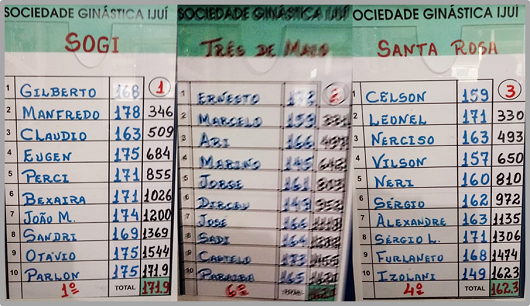 SOCIEDADE GINÁSTICA IJUÍ
SOGI
1
1 GILBERTO 168
2 MANFREDO 178 346
3 CLAUDIO 163 509
4 EUGEN 175 684
5 PERCI 171 855
6 BEXAIRA 171 1026
7 JOÃO M. 174 1200
8 SANDRI 169 1369
9 OTAVIO 175 1544
10 PARLON 175 171.9
1º TOTAL 171.9
SOCIEDADE GINÁSTICA IJUÍ
TRÊS DE MAIO
1 ERNESTO
2 MARCELO 159
3 ARI 166
4 MARINO 145 642
5 JORGE 161
6 DIRCEU
7 JOSÉ 166
8 SADI 164
9 CASTELO 173
10 PARAIBA 165
6º TOTAL
SOCIEDADE GINÁSTICA IJUÍ
SANTA ROSA
3
1 CELSON 159
2 LEONEL 171 330
3 NERCISO 163 493
4 VILSON 157 650
5 NERI 160 810
6 SERGIO 162 972
7 ALEXANDRE 163 1135
8 SÉRGIO L. 171 1306
9 FURLANETO 168 1474
10 IZOLANI 149 162.3
4º TOTAL 162.3